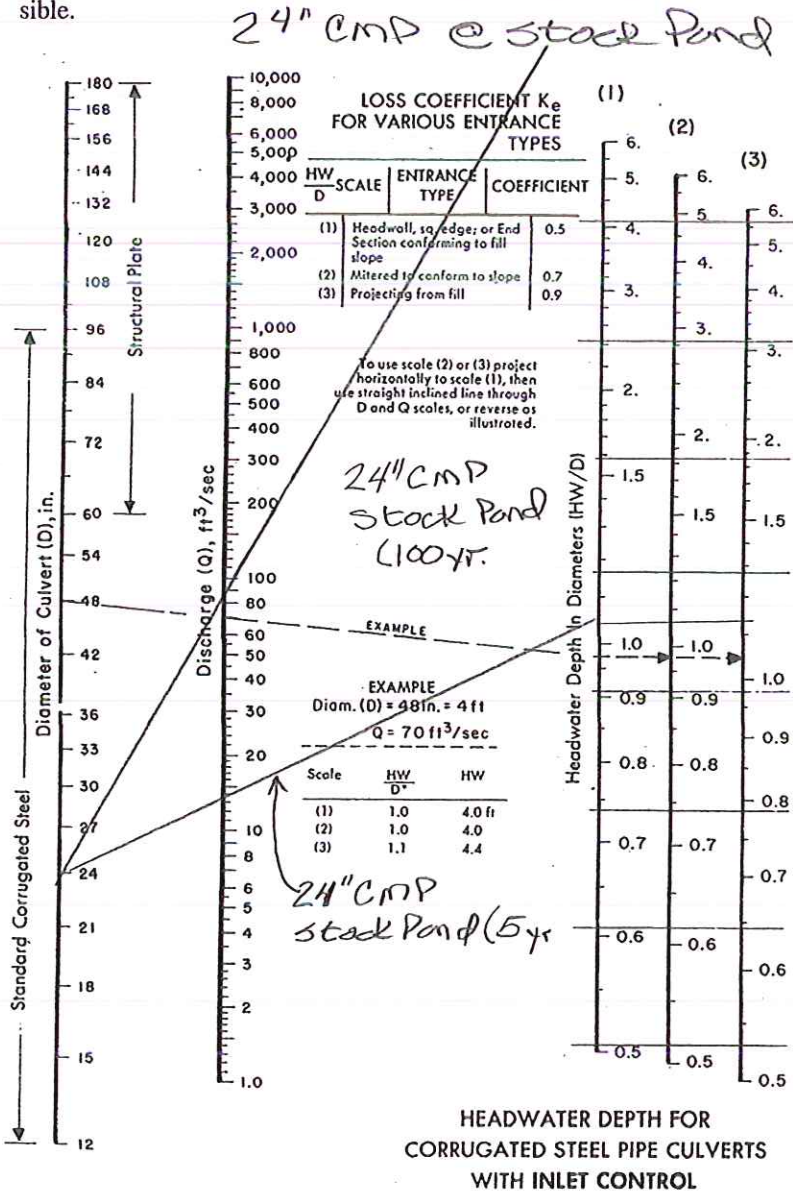 sible.
24" CMP @ Stock Pond
180
168
156
144
132
120
108
96
84
72
60
54
48
42
36
33
30
27
24
21
18
15
12
Structural Plate
Standard Corrugated Steel
Diameter of Culvert (D), in.
10,000
8,000
6,000
5,000
4,000
3,000
2,000
1,000
800
600
500
400
300
200
100
80
60
50
40
30
20
10
8
6
5
4
3
2
1.0
Discharge (Q), ft³/sec
LOSS COEFFICIENT Ke
FOR VARIOUS ENTRANCE
TYPES
HW/D SCALE ENTRANCE TYPE COEFFICIENT
(1) Headwall, sq. edge; or End 0.5
Section conforming to fill
slope
(2) Mitered to conform to slope 0.7
(3) Projecting from fill 0.9
To use scale (2) or (3) project
horizontally to scale (1), then
use straight inclined line through
D and Q scales, or reverse as
illustrated.
24" CMP
Stock Pond
(100 yr.
EXAMPLE
EXAMPLE
Diam. (D) = 48 in. = 4 ft
Q = 70 ft³/sec
Scale HW/D* HW
(1) 1.0 4.0 ft
(2) 1.0 4.0
(3) 1.1 4.4
24" CMP
Stock Pond (5 yr
Headwater Depth In Diameters (HW/D)
(1)
6.
5.
4.
3.
2.
1.5
1.0
0.9
0.8
0.7
0.6
0.5
(2)
6.
5.
4.
3.
2.
1.5
1.0
0.9
0.8
0.7
0.6
0.5
(3)
6.
5.
4.
3.
2.
1.5
1.0
0.9
0.8
0.7
0.6
0.5
HEADWATER DEPTH FOR
CORRUGATED STEEL PIPE CULVERTS
WITH INLET CONTROL